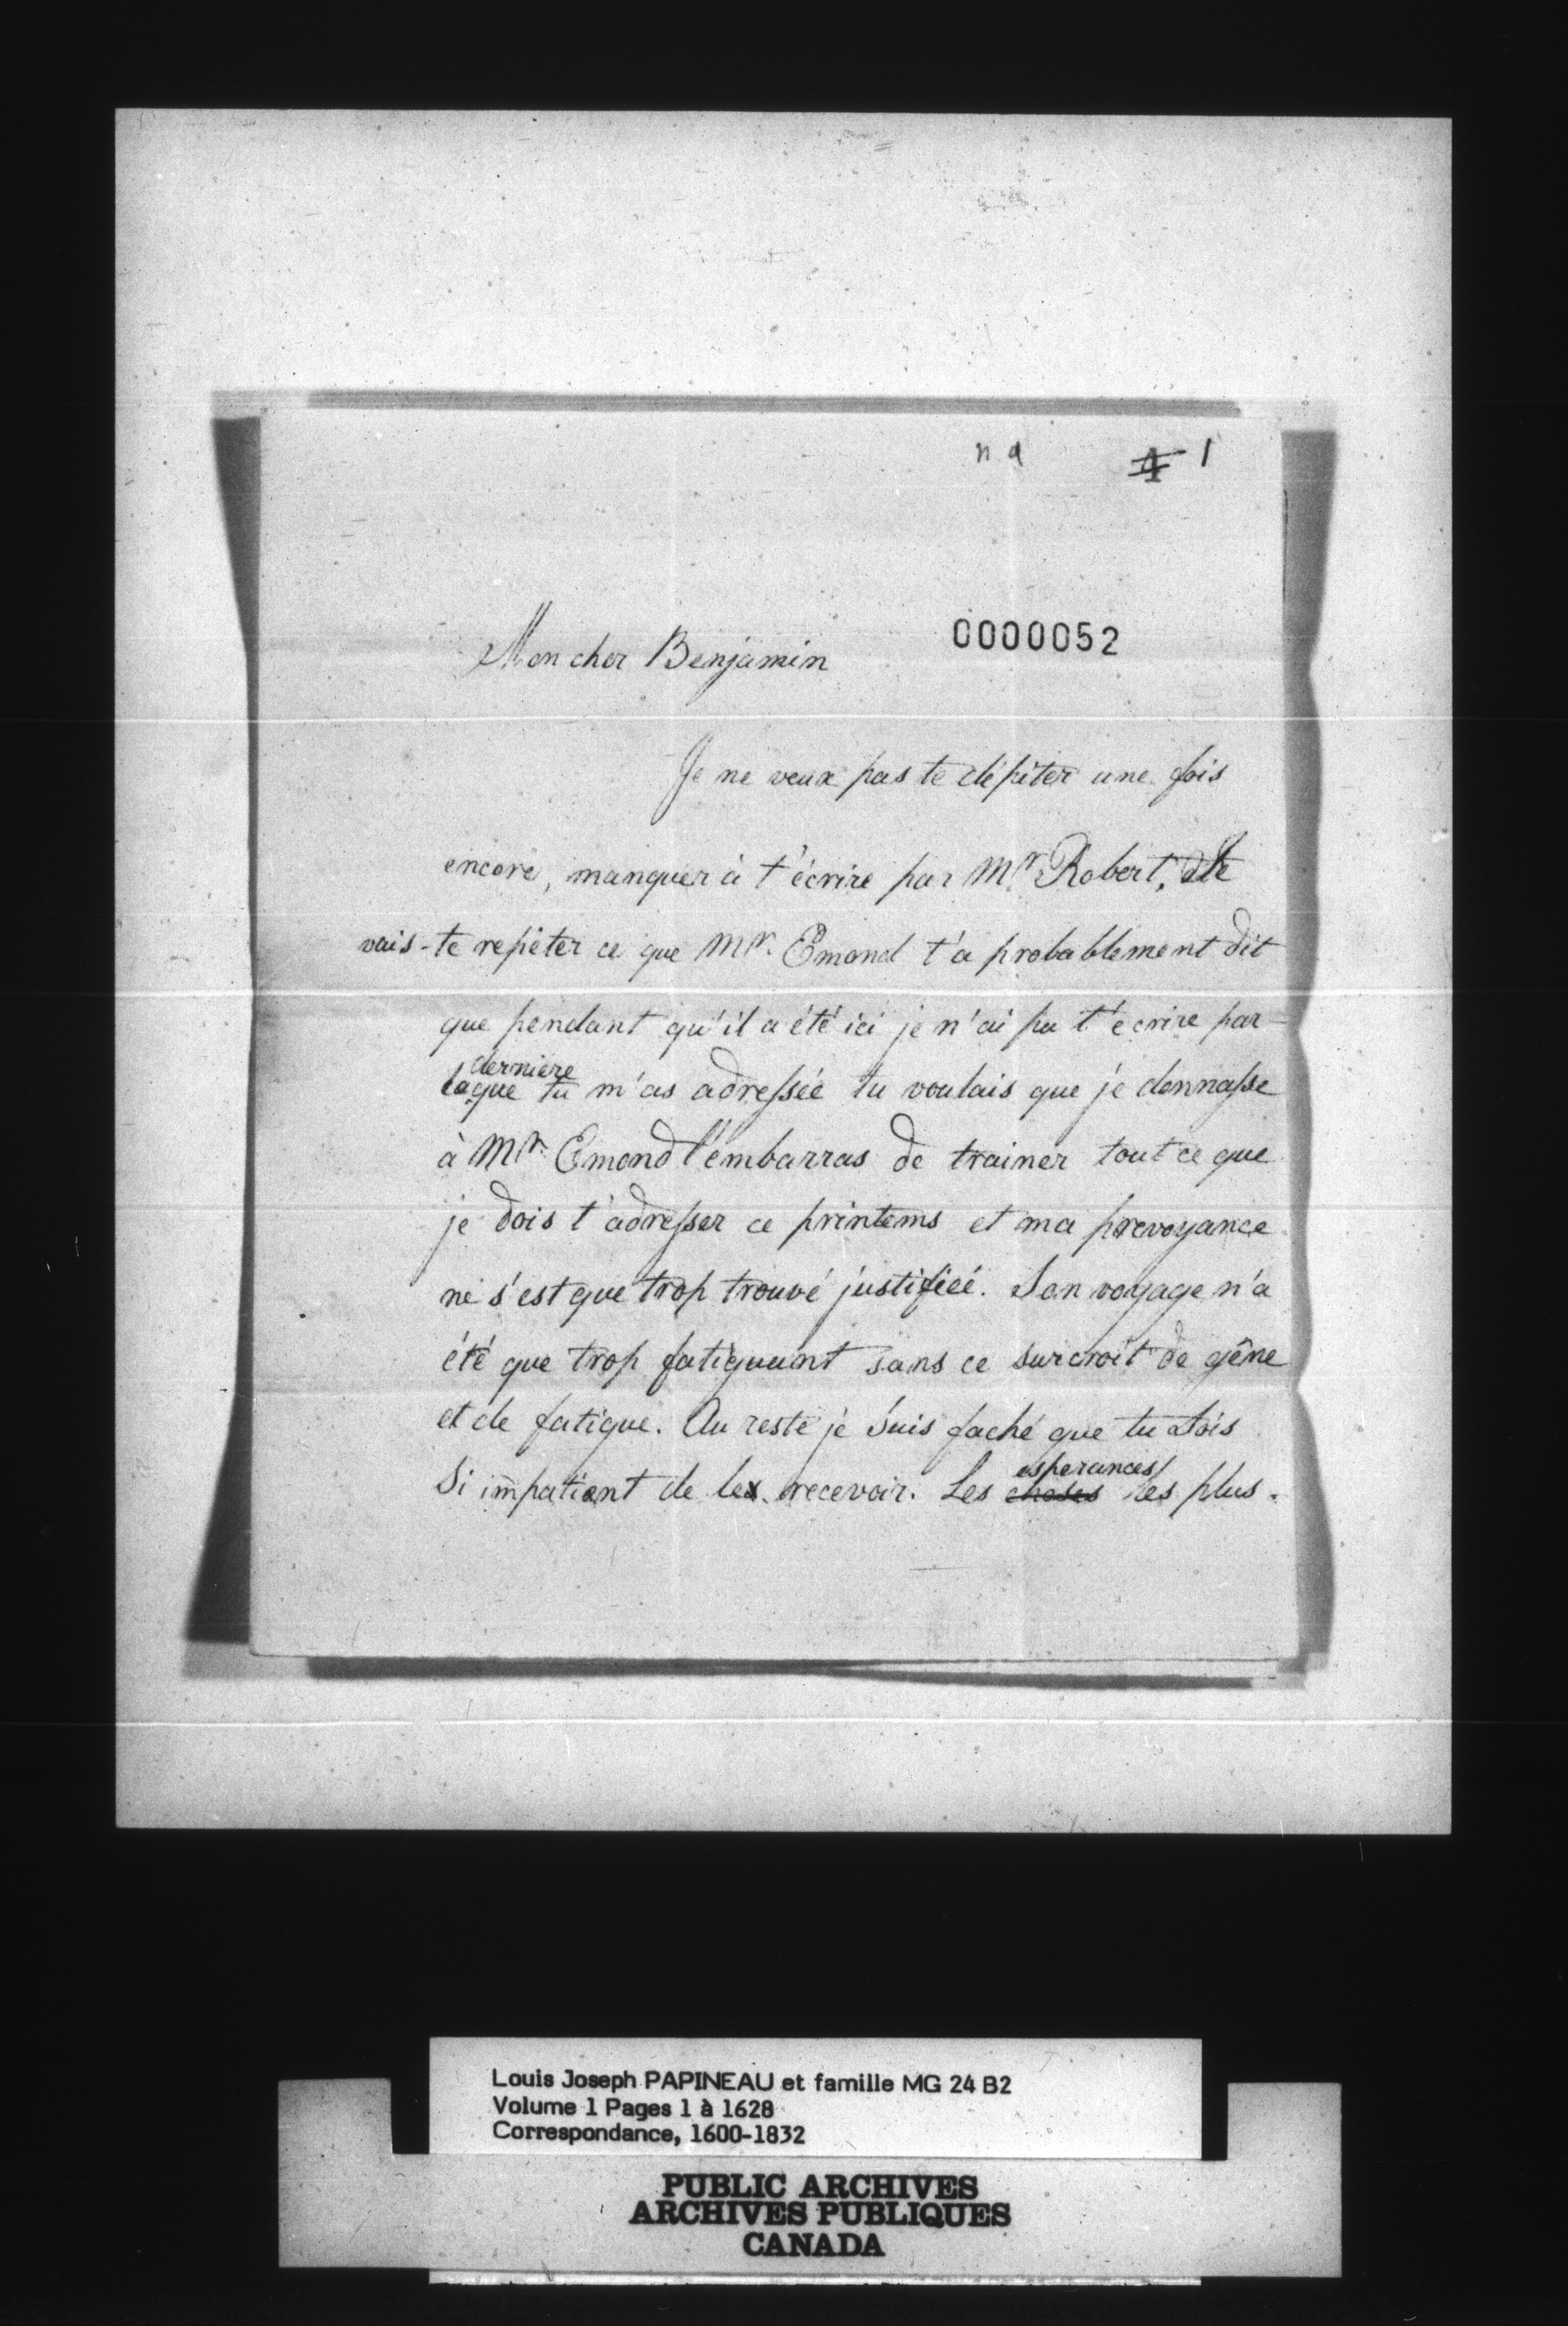 n d 4 1
0000052
Mon cher Benjamin
Je ne veux pas te dépiter une fois
encore, manquer à t'écrire par Mr. Robert.
vais-te repéter ce que Mr. Emond t'a probablement dit
que pendant qu'il a été ici je n'ai pu t'écrire par
dernière
la que tu m'as adressée tu voulais que je donnasse
à Mr. Emond l'embarras de trainer tout ce que
je dois t'adresser ce printems et ma prevoyance
ne s'est que trop trouvé justifiée. Son voyage n'a
été que trop fatiguant sans ce surcroit de gêne
et de fatigue. Au reste je suis faché que tu sois
esperances
Si impatient de les recevoir. Les choses les plus.
Louis Joseph PAPINEAU et famille MG 24 B2
Volume 1 Pages 1 à 1628
Correspondance, 1600-1832
PUBLIC ARCHIVES
ARCHIVES PUBLIQUES
CANADA